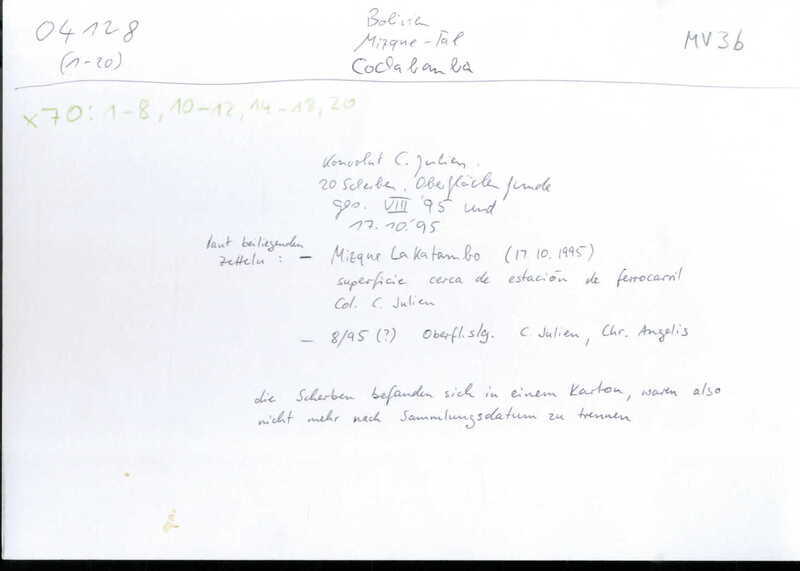 04128
(1-20)
Bolivien
Mizque-Tal
Cochabamba
MV3b
x70: 1-8, 10-12, 14-18, 20
Konvolut C. Julien.
20 Scherben. Oberflächenfunde
ges. VIII '95 und
17.10.'95
laut beiliegenden
Zetteln: - Mizque Lakatambo (17.10.1995)
superficie cerca de estación de ferrocarril
Col. C. Julien
- 8/95 (?) Oberfl.slg. C. Julien, Chr. Angelis
die Scherben befanden sich in einem Karton, waren also
nicht mehr nach Sammlungsdatum zu trennen